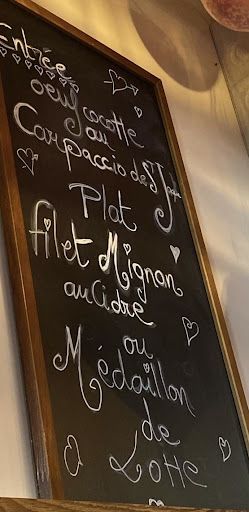 Entrée
oeuf cocotte
au
Carpaccio de St Jak
Plat
filet Mignon
au Cidre
ou
Médaillon
de
Lotte